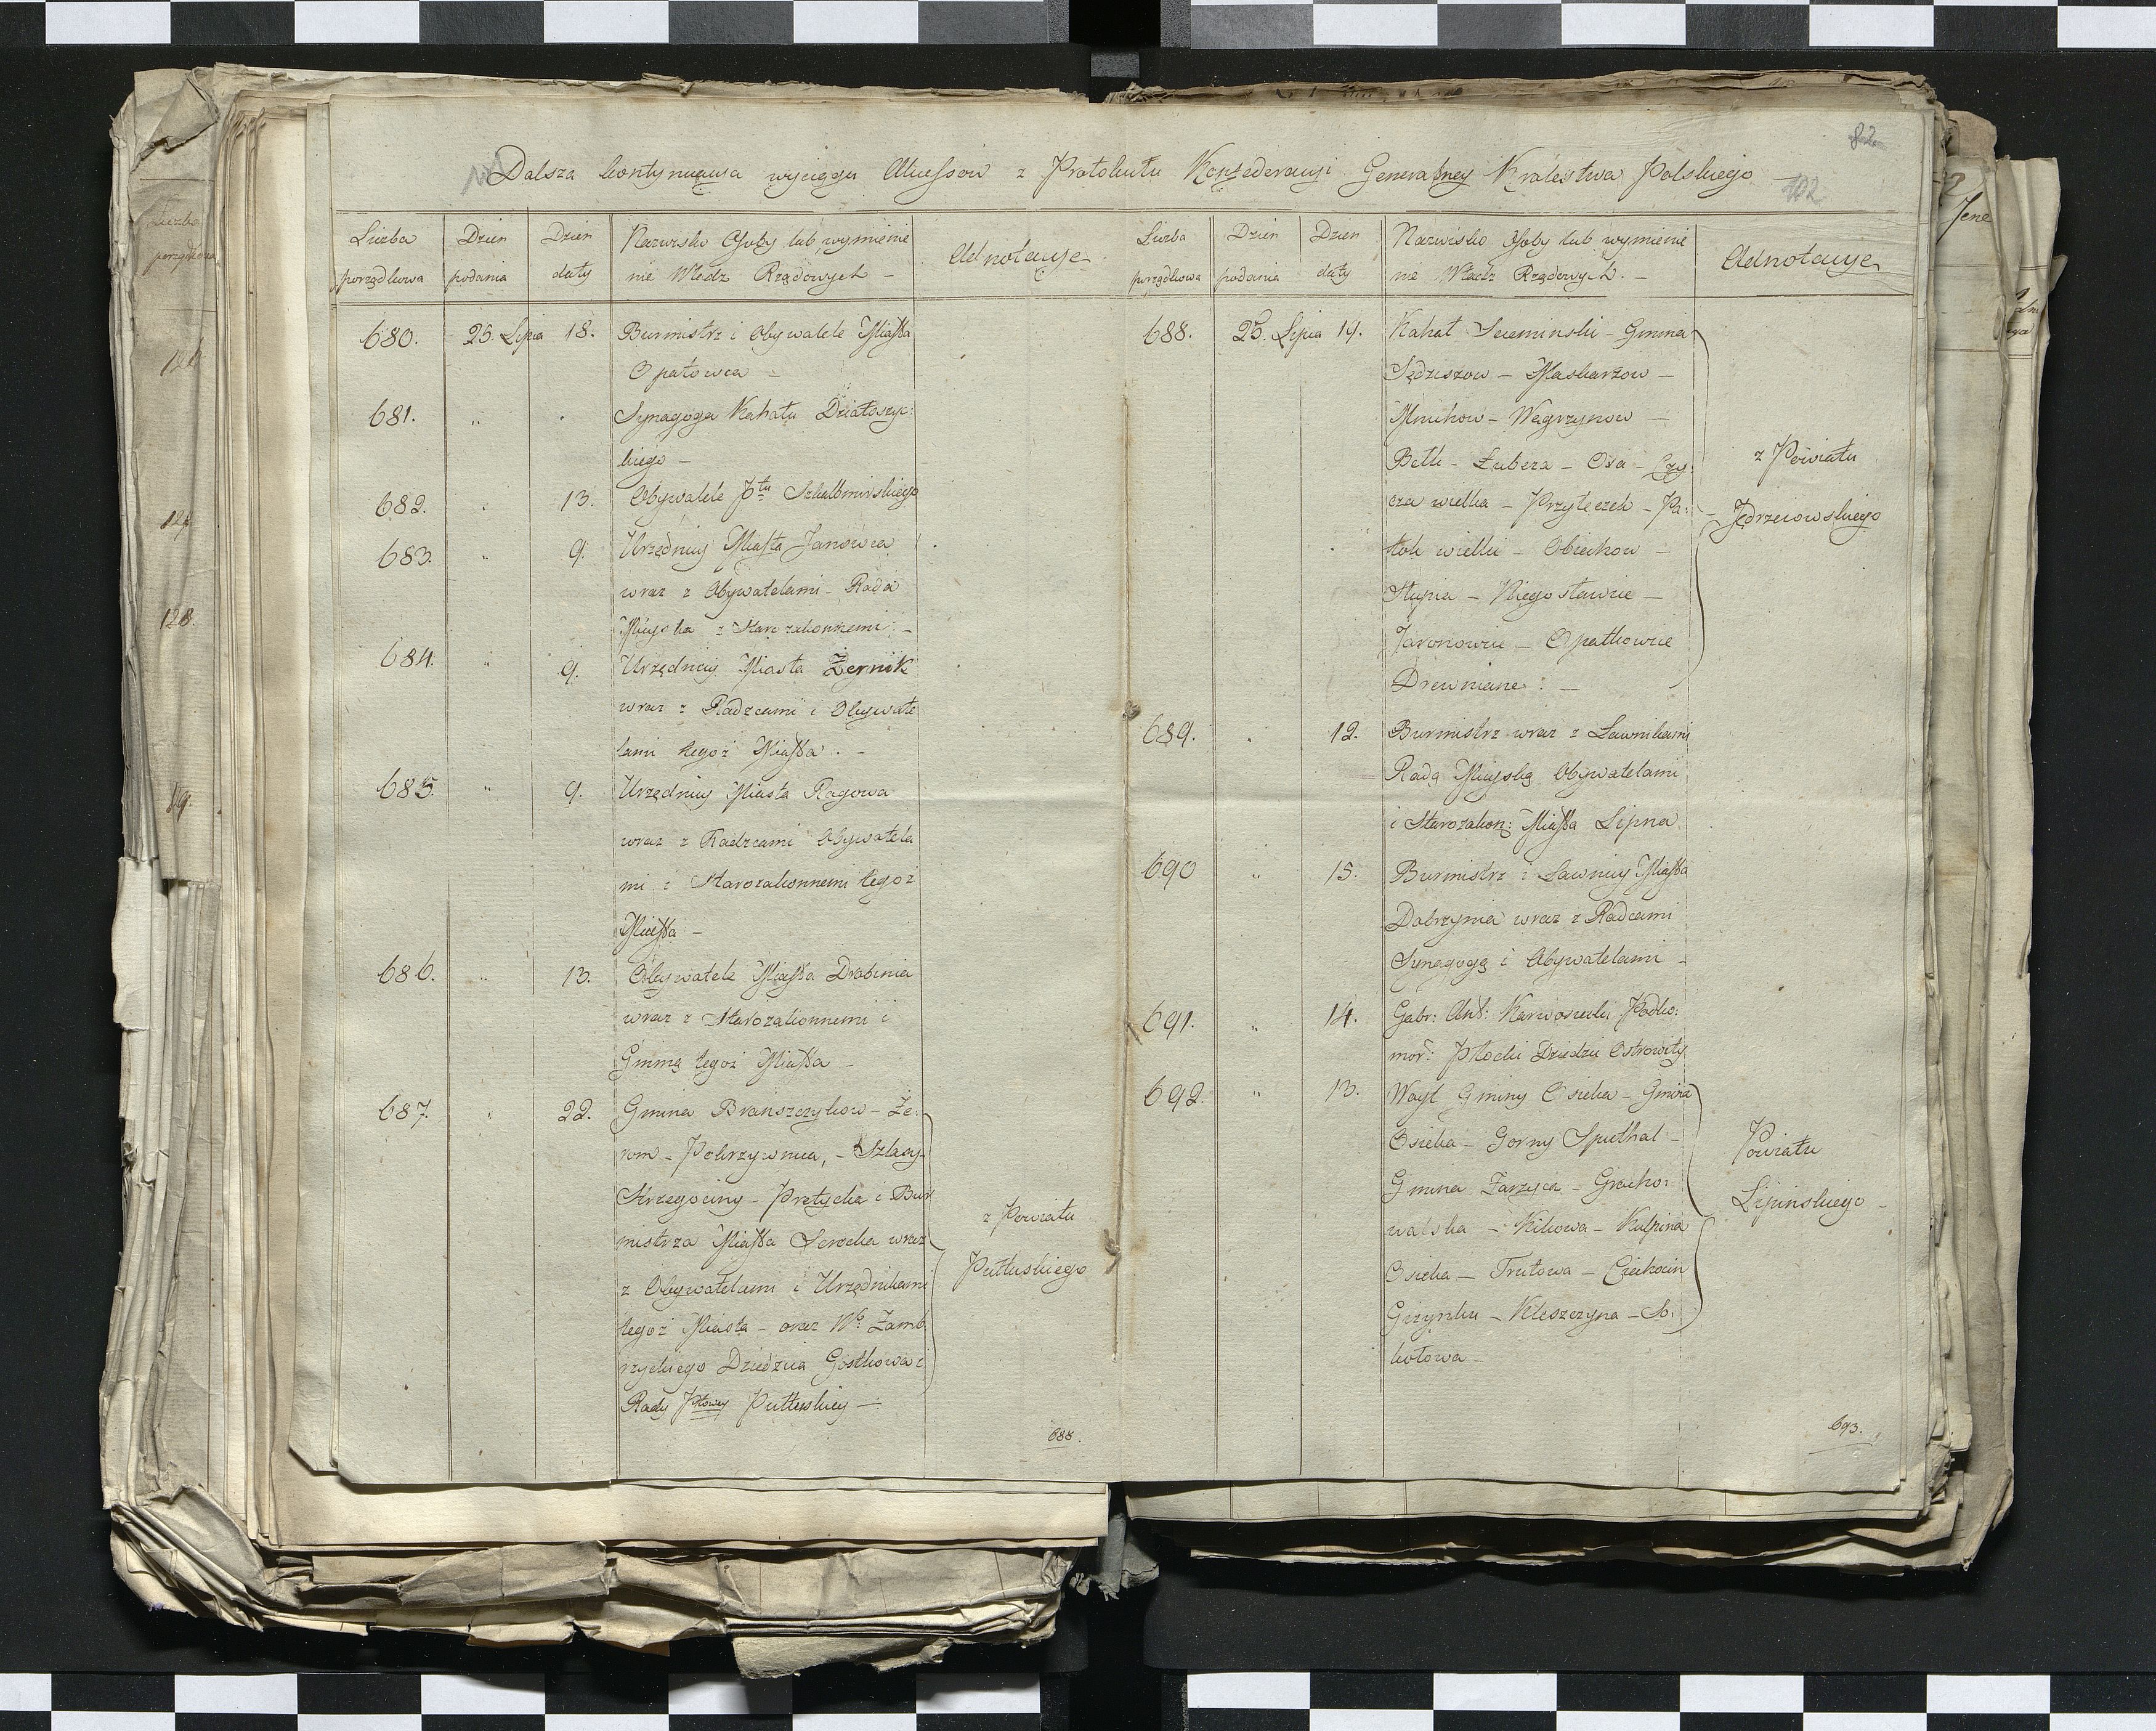 82
102
Dalsza kontynuacya wyciągu Akcessów z Protokułu Konfederacyi Generalney Królestwa Polskiego
Liczba porządkowa
Dzień podania
Dzień daty
Nazwisko Osoby lub wymienie
nie Władz Rządowych –
Adnotacye
680. 25. Lipca 18. Burmistrz i Obywatele Miasta
Opatowca –
681. „ . Synagoga Kahału Działoszyc:
kiego –
682. „ 13. Obywatele Ptu Szkalbmirskiego
683. „ 9. Urzędnicy Miasta Janowca
wraz z Obywatelami – Rada
Mieyska z Starozakonnemi –
684. „ 9. Urzędnicy Miasta Żernik
wraz z Radzcami i Obywate
lami tegoż Miasta . –
685. „ 9. Urzędnicy Miasta Ragowa
wraz z Radzcami Obywatela
mi i Starozakonnemi tegoż
Miasta –
686. „ 13. Obywatele Miasta Drobinia
wraz z Starozakonnemi i
Gminą tegoż Miasta –
687. „ 22. Gmina Brańszczykow – Że:
rom – Pokrzywnica, – Szlasy
Strzegociny – Pretycka i Bur
mistrza Miasta Serocka wraz
z Obywatelami i Urzędnikami
tegoż Miasta – oraz Wo Zamb
rzyckiego Dziedzica Gostkowa i
Rady Ptowey Pułtuskiey –
z Powiatu
Pułtuskiego
688.
Liczba porządkowa
Dzień podania
Dzień daty
Nazwisko Osoby lub wymienie
nie Władz Rządowych. –
Adnotacye
688. 25. Lipca 14. Kahał Secemiński – Gmina
Sędziszow – Maskarzow –
Mnichow – Węgrzynow –
Belk – Łubcza – Osa – Czy:
cza wielka – Przyłęczek – Pa:
tok wielki – Obiechow –
Słupia – Niegosławice –
Jaronowice – Opatkowice
Drewniane: –
z Powiatu
Jędrzeiowskiego
689. „ 12. Burmistrz wraz z Ławnikami
Radą Mieyską Obywatelami
i Starozakon: Miasta Lipna
690 „ 15. Burmistrz i Ławnicy Miasta
Dobrzynia wraz z Radcami
Synagogą i Obywatelami –
691. „ 14. Gabr: Ant: Karwosiecki Podko:
mor: Płocki Dziedzic Ostrowity
692. „ 13. Woyt Gminy Osieka – Gmina
Osieka – Gorny Spithal –
Gmina Zarzyca – Grocho:
walska – Kikowa – Kulpina
Osieka – Trutowa – Ciechocin
Gizynku – Kleszczyna – So:
kołowa –
Powiatu
Lipinskiego –
693.